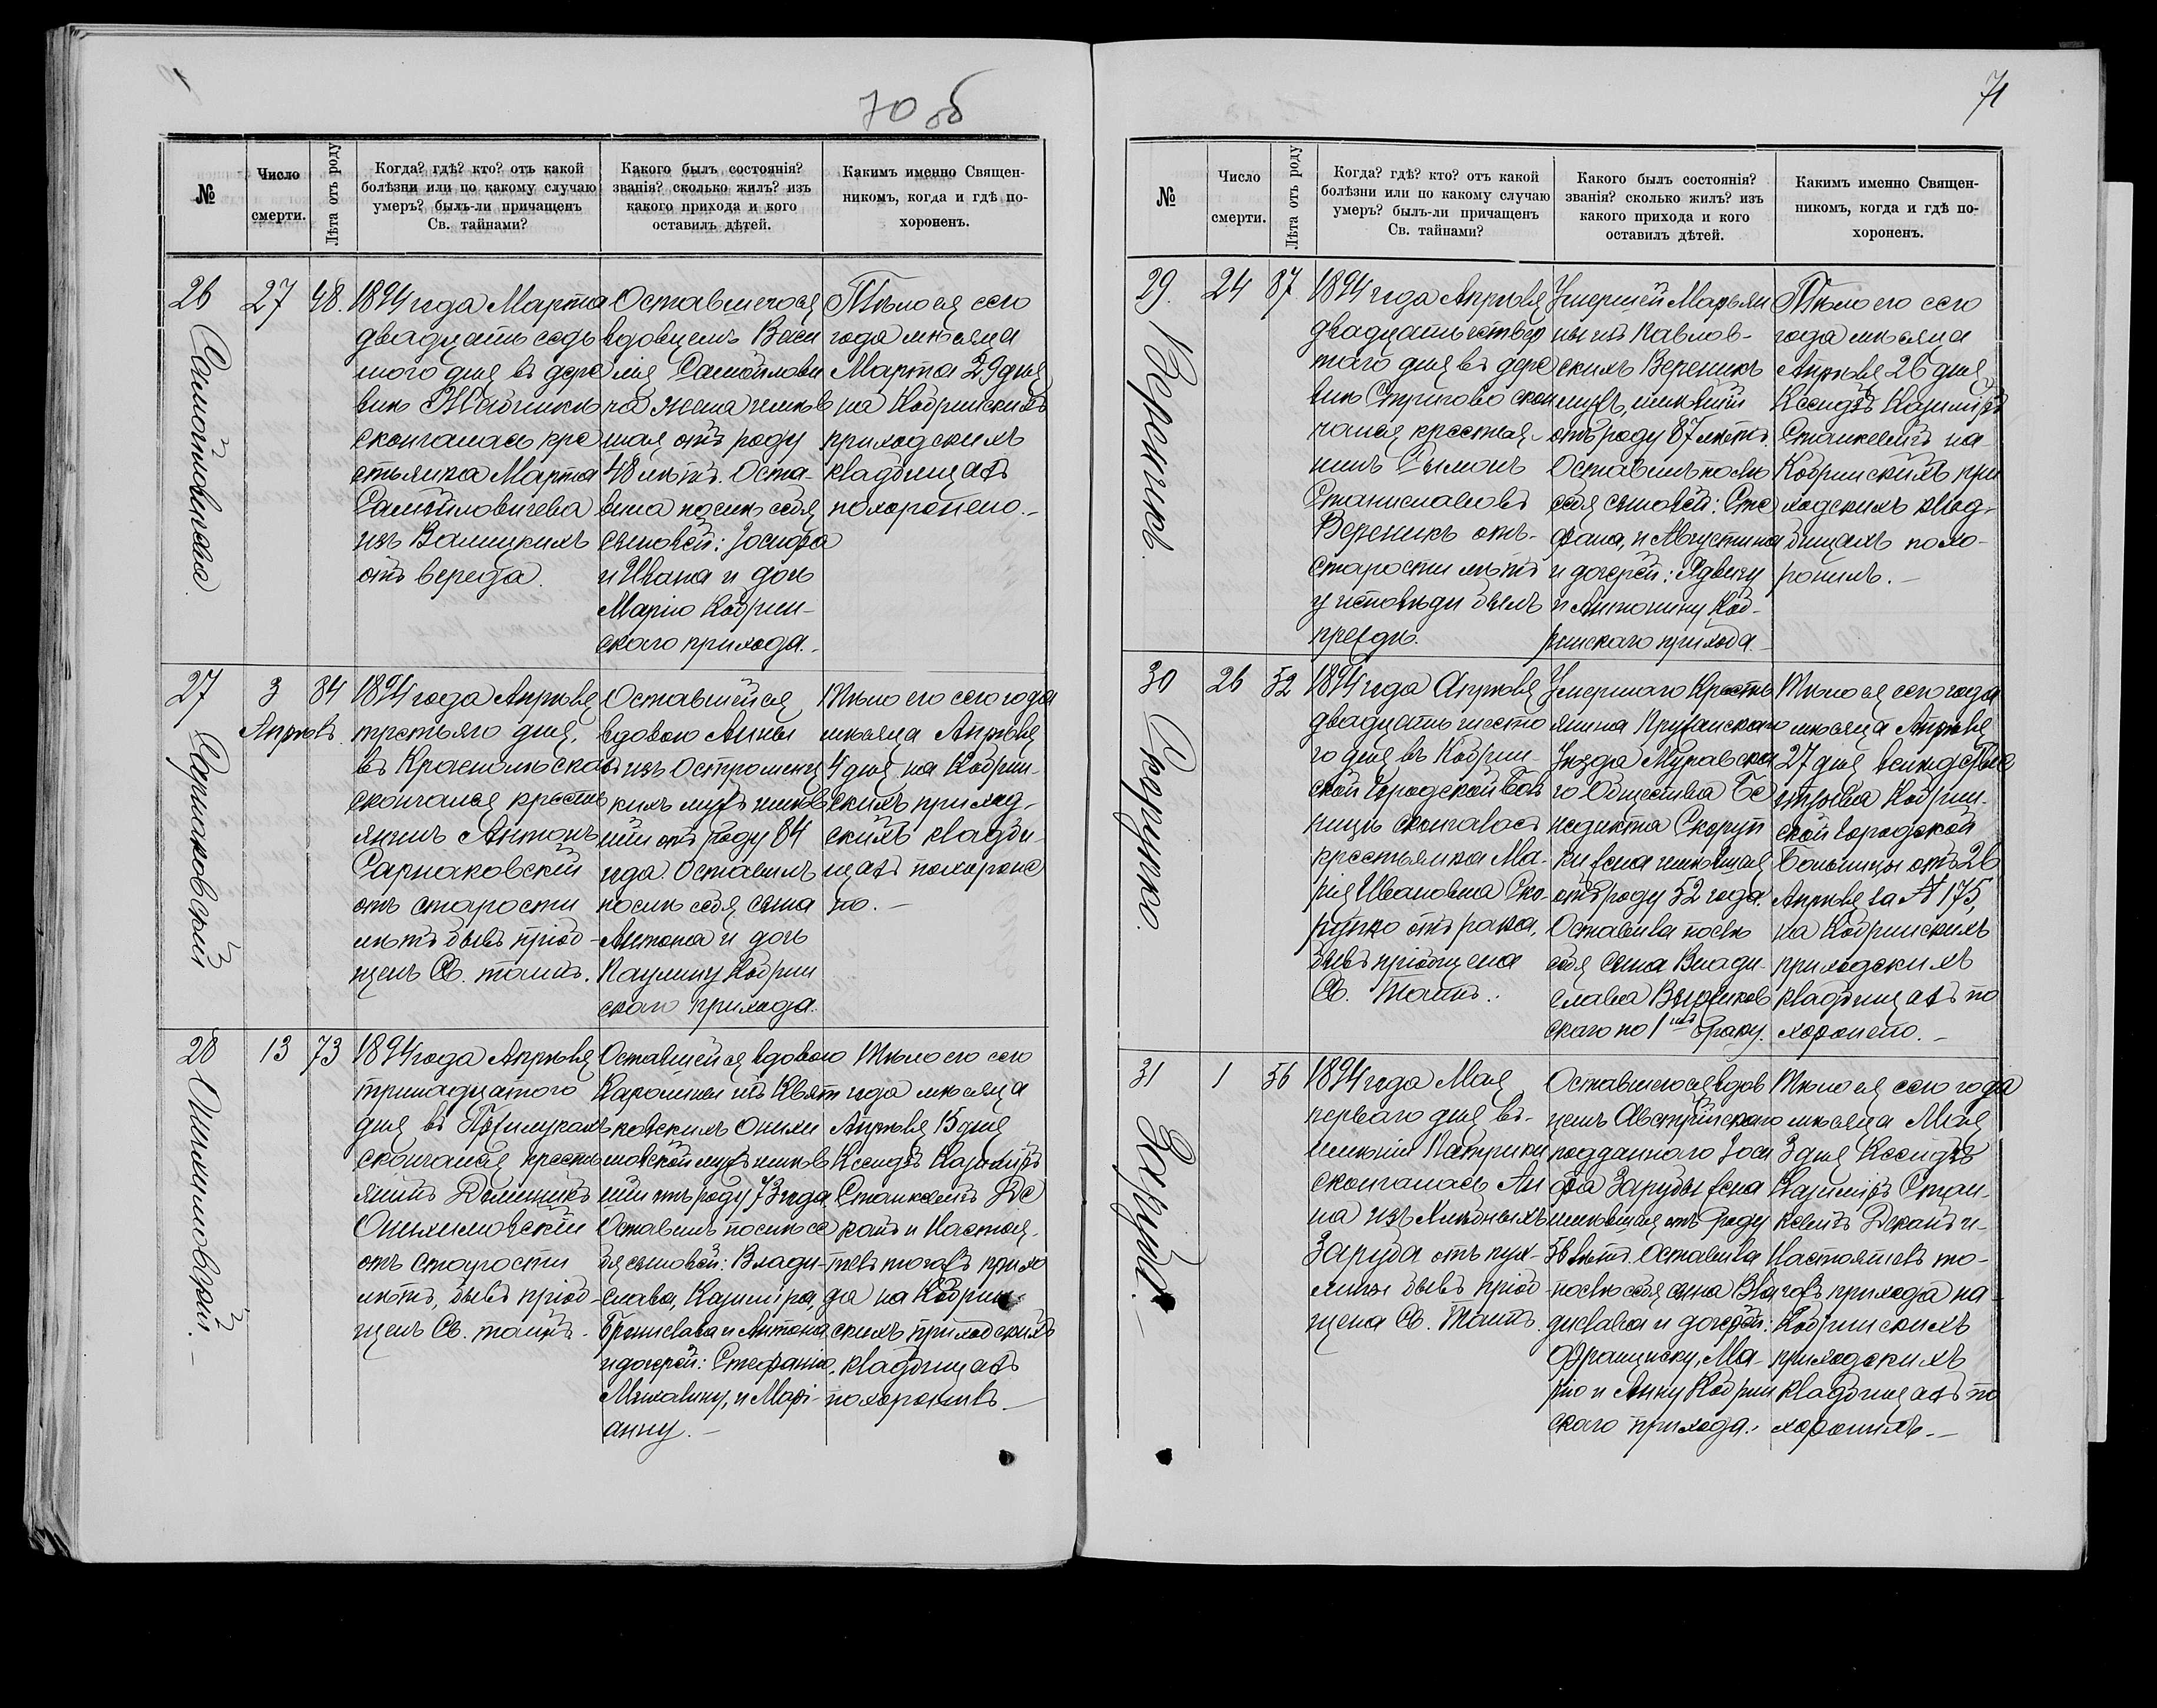 70 об
№
Число
смерти.
Лѣта отъ роду
Когда? гдѣ? кто? отъ какой
болѣзни или по какому случаю
умеръ? былъ-ли причащенъ
Св. тайнами?
Какого былъ состоянія?
званія? сколько жилъ? изъ
какого прихода и кого
оставилъ дѣтей.
Какимъ именно Священ-
никомъ, когда и гдѣ по-
хороненъ.
26
Самойловичева
27
48.
1894 года Марта
двадцать седь
мого дня въ дере
внѣ
скончалась кре
стьянка Марта
Самойловичева
изъ Валицкихъ
отъ вереда.
Оставшегося
вдовцемъ Васи
лія Самойлови
ча жена имѣв
шая отъ роду
48 лѣтъ. Оста-
вила послѣ себя
сыновей: Іосифа
и Ивана и дочь
Марію Кобрин-
скаго прихода.
Тѣло ея сего
года мѣсяца
Марта 29 дня
на Кобринскихъ
приходскихъ
кладбищахъ
похоронено.
27
Сарнаковскій
3
Апрѣль.
84
1894 года Апрѣля
третьяго дня,
въ
скончался кресть
янинъ Антонъ
Сарнаковскій
отъ старости
лѣтъ бывъ пріоб-
щенъ Св. таинъ.
Оставшейся
вдовою Анны
изъ Остромец
кихъ мужъ имѣв
шій отъ роду 84
года. Оставилъ
послѣ себя сына
Антона и дочь
Паулину Кобрин
скаго прихода.
Тѣло его сего года
мѣсяца Апрѣля
4 дня на Кобрин-
скихъ приход-
скихъ кладби-
щахъ похороне
но.
28
Онихимовскій.
13
73
1894 года Апрѣля
тринадцатого
дня въ
скончался кресть
янинъ Доминикъ
Онихимовскій
отъ старости
лѣтъ, бывъ пріоб-
щенъ Св. таинъ.
Оставшейся вдовою
Каролины изъ Квят
ковскихъ Онихи
мовской мужъ имѣв
шій отъ роду 73 года
Оставилъ послѣ се
бя сыновей: Влади-
слава, Казиміра,
Бронислава и Антона
и дочерей: Стефанію,
Михалину, и Марі-
анну.
Тѣло его сего
года мѣсяца
Апрѣля 15 дня
Ксендзъ Казиміръ
Станкевичъ Де
канъ и Настоя-
тель тогожъ прихо
да на Кобрин-
скихъ приходскихъ
кладбищахъ
похоронилъ
71
№
Число
смерти.
Лѣта отъ роду
Когда? гдѣ? кто? отъ какой
болѣзни или по какому случаю
умеръ? былъ-ли причащенъ
Св. тайнами?
Какого былъ состоянія?
званія? сколько жилъ? изъ
какого прихода и кого
оставилъ дѣтей.
Какимъ именно Священ-
никомъ, когда и гдѣ по-
хороненъ.
29.
Вереникъ.
24
87
1894 года Апрѣля
двадцать четвер
таго дня въ дере
внѣ Стригово скон
чался крестья-
нинъ Сымонъ
Станиславовъ
Вереникъ отъ
старости лѣтъ
у исповѣди былъ
прежде.
Умершей Марьян
ны изъ Павлов-
скихъ Вереникъ
мужъ, имѣвшій
отъ роду 87 лѣтъ.
Оставилъ послѣ
себя сыновей: Сте
фана, и Августина
и дочерей: Ядвигу
и Антонину Коб-
ринскаго прихода.
Тѣло его сего
года мѣсяца
Апрѣля 26 дня
Ксендзъ Казиміръ
Станкевичъ на
Кобринскихъ при
ходскихъ клад-
бищахъ похо-
ронилъ.
30
Скорупко.
26
52
1894 года Апрѣля
двадцать шесто
го дня въ Кобрин-
ской Городской Боль
ницѣ скончалась
крестьянка Ма-
рія Ивановна Ско-
рупко отъ рака,
бывъ пріобщена
Св. Таинъ.
Умершаго Кресть
янина Пружанскаго
Уѣзда Муравско
го Общества Бе
недикта Скоруп
ки жена имѣвшая
отъ роду 52 года.
Оставила послѣ
себя сына Влади-
слава
скаго по 1му браку.
Тѣло ея сего года
мѣсяца Апрѣля
27 дня вслѣдствіе
отзыва Кобрин-
ской Городской
Больницы отъ 26
Апрѣля за № 175,
на Кобринскихъ
приходскихъ
кладбищахъ по
хоронено.
31
Заруба.
1
56
1894 года Мая
перваго дня въ
имѣніи Патрики
скончалась Ан
на изъ
Заруба отъ пух-
лины бывъ пріоб
щена Св. Таинъ.
Оставшегося вдов
цемъ Австрійскаго
подданного Іоси
фа Зарубы жена
имѣвшая отъ роду
56 лѣтъ. Оставила
послѣ себя сына Вла
дислава и дочерей:
Францишку, Ма-
рію и Анну Кобрин
скаго прихода.
Тѣло ея сего года
мѣсяца Мая
3 дня Ксендзъ
Казиміръ Стан-
кевичъ Деканъ и
Настоятель то-
гожъ прихода на
Кобринскихъ
приходскихъ
кладбищахъ по
хоронилъ.